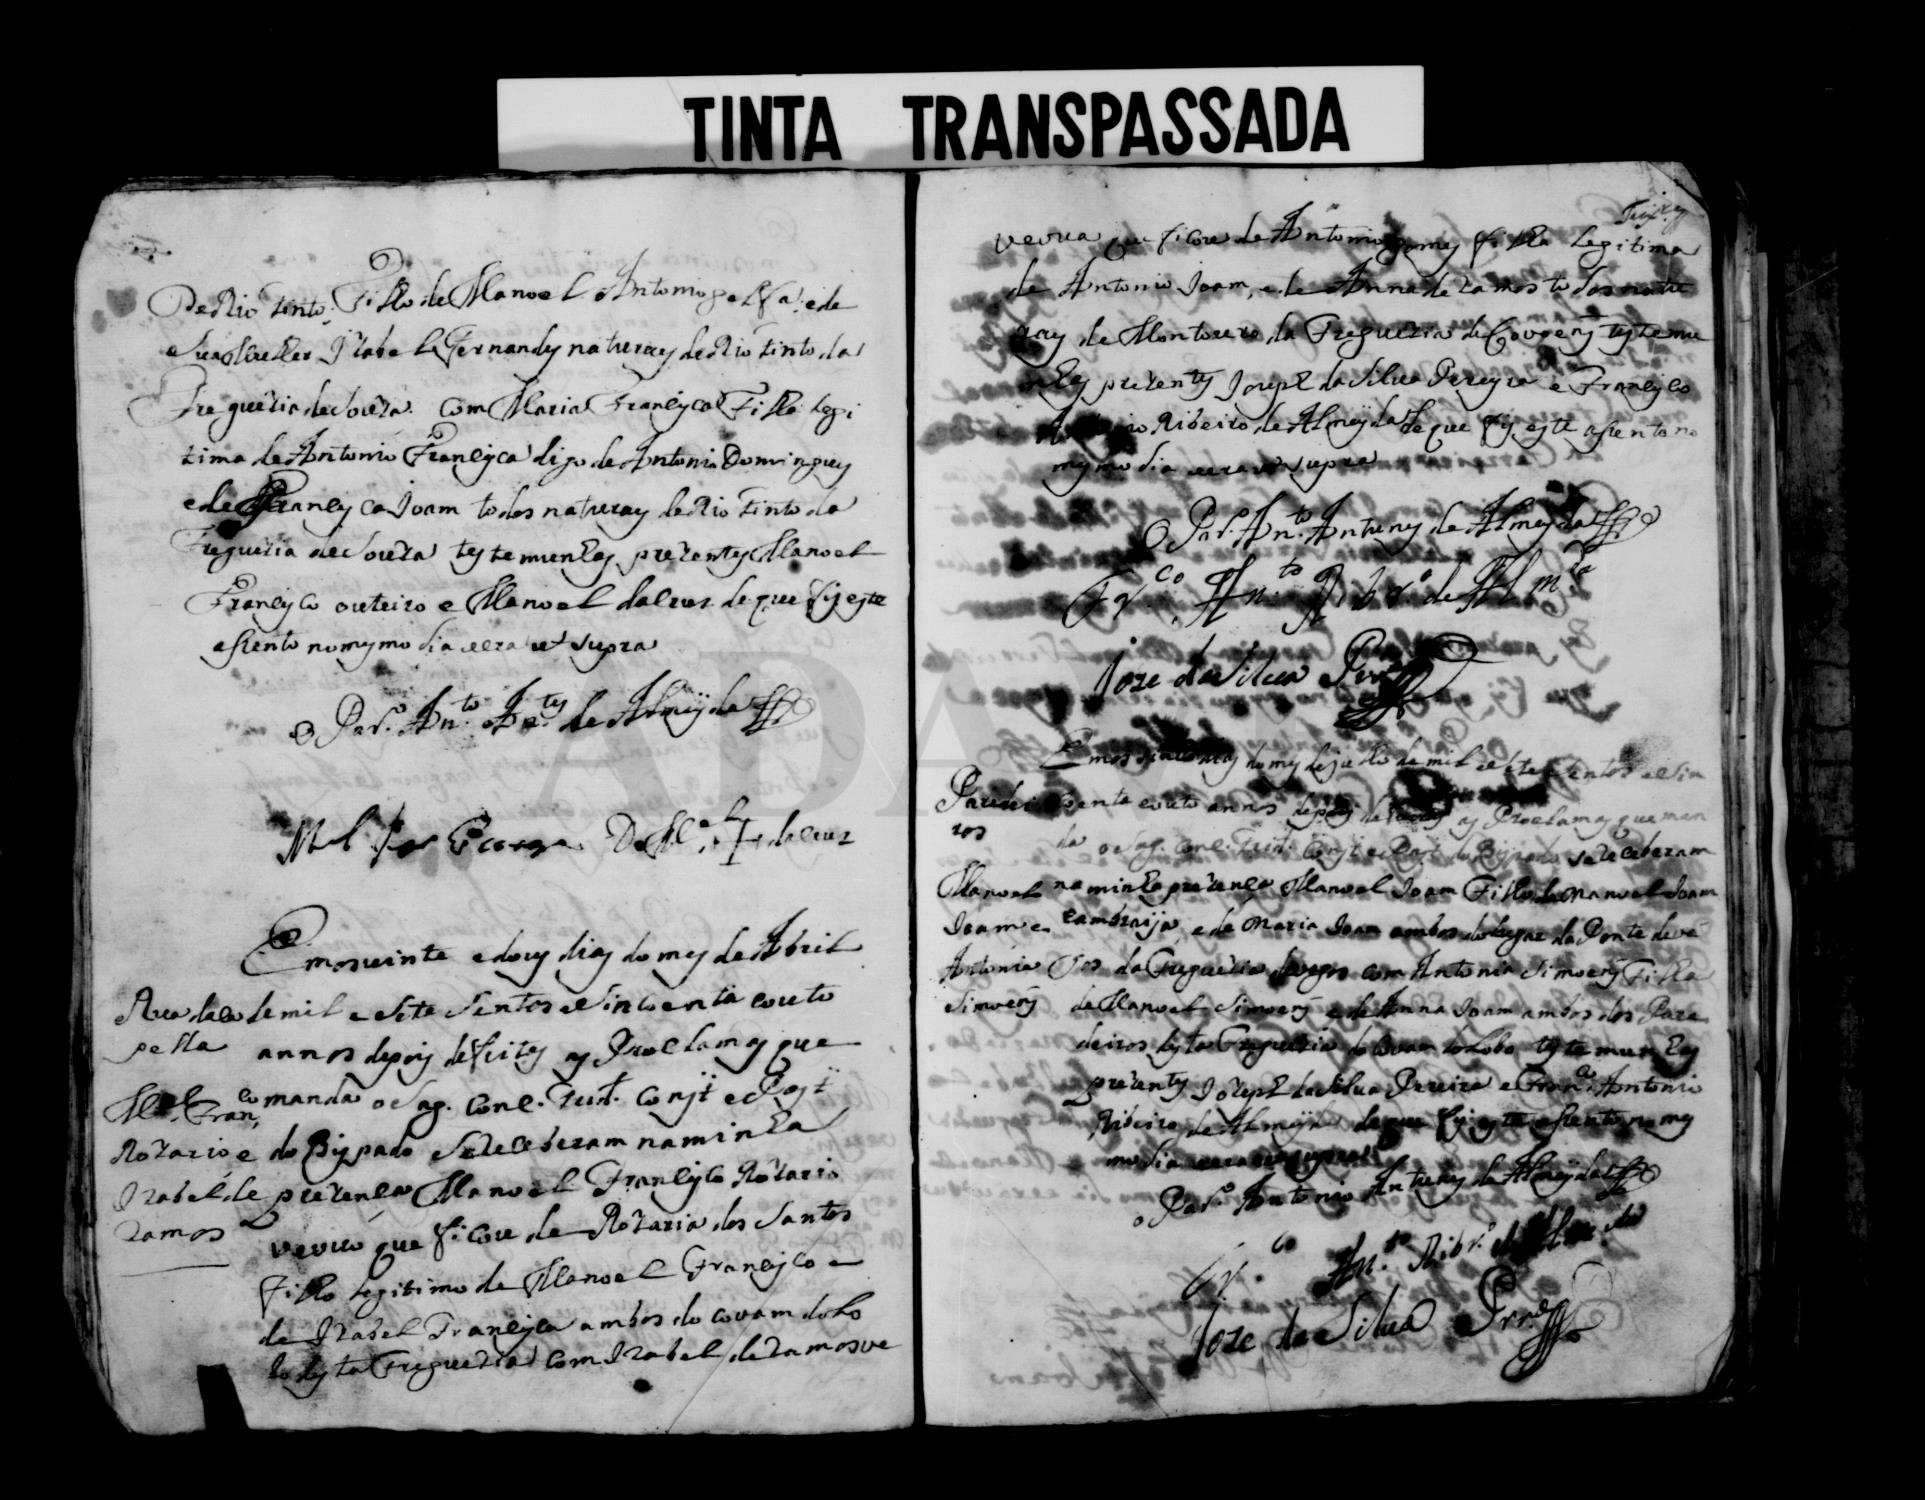 TINTA TRANSPASSADA
De Rio tinto, Filho de Manoel Antonio e de
Sua Mulher Izabel Fernandes naturaes de Rio tinto da
Freguezia de Souza. Com Maria Francisca Filha Legi
tima de Antonio Francisca digo de Antonio Domingues
e de Francisca Joam todos naturaes de Rio tinto da
Freguezia de Souza testemunhas prezentes Manoel
Francisco outeiro e Manoel da Crus de que fis este
asento no mesmo dia eera ut supra
O Par.º An.to An.tes de Almeyda
M.el da Crus
Em os vinte e dous dias do mes de Abril
de mil e Sete Sentos e Sincoenta e outo
annos depois de feitas as Proclamas que
manda o Sag. Conc. Trid. Const.
do Bispado Se receberam na minha
prezença Manoel Francisco Rozario
veuvo que ficou de Rozaria dos Santos
Filho legitimo de Manoel Francisco e
de Izabel Francisca ambos do covam do Lo
bo desta Freguezia com Izabel de Ramos ve
Rua da Ca
pella
M.el Fran.co
Rozario e
Izabel de
Ramos
veuva que ficou de Antonio Gomes filha Legitima
de Antonio Joam, e de Anna de Ramos todos natu
raes de Montouro da Freguezia de Covoens testemu
nhas prezentes Joseph da Silva Pereyra e Francisco
Antonio Ribeiro de Almeyda de que fis este asento no
mesmo dia eera ut supra
O Par.º An.to Antunes de Almeyda
Fr.co An.to Rib.ro de Alm.da
Joze da Silva Prr.a
Em os sinco dias do mes de julho de mil e Sete Sentos e Sin
coenta e outo annos depois de feitas as Proclamas que man
da o Sag. Conc. Trid. Const. do Bispado Se receberam
na minha prezença Manoel Joam Filho de Manoel Joam
e de Maria Joam ambos do lugar da Ponte de va
gos da Freguezia de vagos com Antonia Simoens Filha
de Manoel Simoens e de Anna Joam ambos dos Pare
deiros desta Freguezia do Covam do Lobo testemunhas
prezentes Joseph da Silva Pereira e Fran.co Antonio
Ribeiro de Almeyda de que fis este asento no mes
mo dia eera ut supra
O Par.º Antonio Antunes de Almeyda
An.to Rib.ro de
Joze da Silva Prr.a
Paredei
ros
Manoel
Joam e
Antonia
Simoens